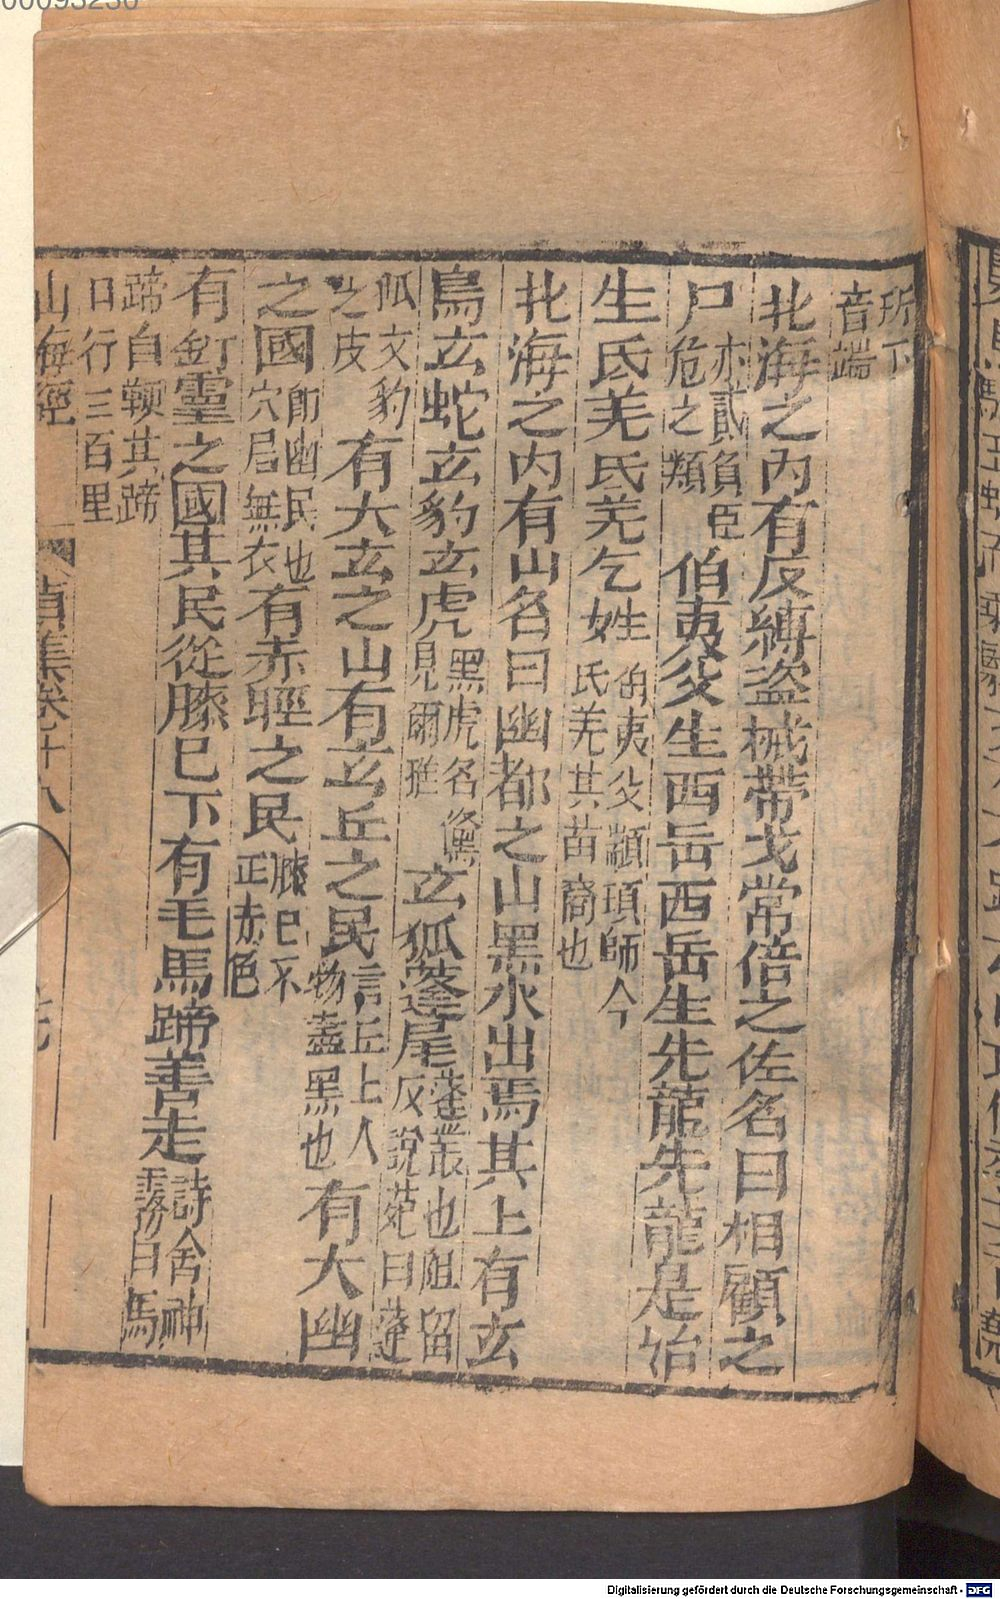 所下音端
北海之內有反縛盜械帶戈常倍之佐名曰相顧之
尸亦貳負臣危之類伯夷父生西岳西岳生先龍先龍是始
生氐羌氐羌乞姓伯夷父顓頊師今氐羌其苗裔也
北海之內有山名曰幽都之山黑水出焉其上有玄
鳥玄蛇玄豹玄虎黑虎名虪見爾雅玄狐蓬尾蓬叢也阻留反說苑曰蓬
狐文豹之皮有大玄之山有玄丘之民言丘上人物盡黑也有大幽
之國即幽民也穴居無衣有赤脛之民膝已下正赤色
有釘靈之國其民從膝已下有毛馬蹄善走詩含神霧曰馬
蹄自鞭其蹄日行三百里
山海經 卷十八
Digitalisierung gefördert durch die Deutsche Forschungsgemeinschaft - DFG